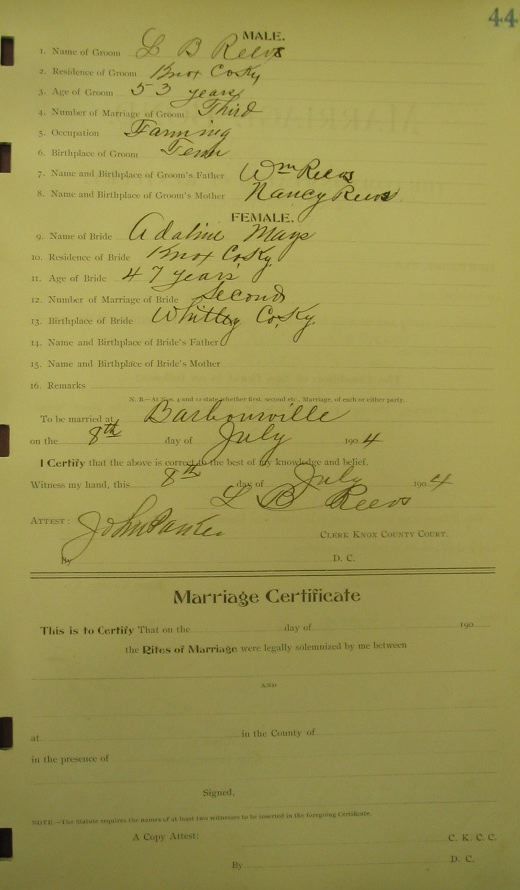 44
MALE.
1. Name of Groom L B Reevs
2. Residence of Groom Knox Co Ky
3. Age of Groom 53 years
4. Number of Marriage of Groom Third
5. Occupation Farming
6. Birthplace of Groom Tenn
7. Name and Birthplace of Groom's Father Wm Reevs
8. Name and Birthplace of Groom's Mother Nancy Reevs
FEMALE.
9. Name of Bride Adaline Mays
10. Residence of Bride Knox Co, Ky.
11. Age of Bride 47 years
12. Number of Marriage of Bride Second
13. Birthplace of Bride Whitley Co, Ky.
14. Name and Birthplace of Bride's Father
15. Name and Birthplace of Bride's Mother
16. Remarks
N. B.—At Nos. 4 and 12 state whether first, second etc., Marriage, of each or either party.
To be married at Barbourville
on the 8th day of July 1904
I Certify that the above is correct to the best of my knowledge and belief.
Witness my hand, this 8th day of July 1904
L B Reevs
ATTEST: John Parker
CLERK KNOX COUNTY COURT.
By D. C.
Marriage Certificate
This is to Certify That on the day of 190
the Rites of Marriage were legally solemnized by me between
AND
at in the County of
in the presence of
Signed,
NOTE.—The Statute requires the names of at least two witnesses to be inserted in the foregoing Certificate.
A Copy Attest: C. K. C. C.
By D. C.